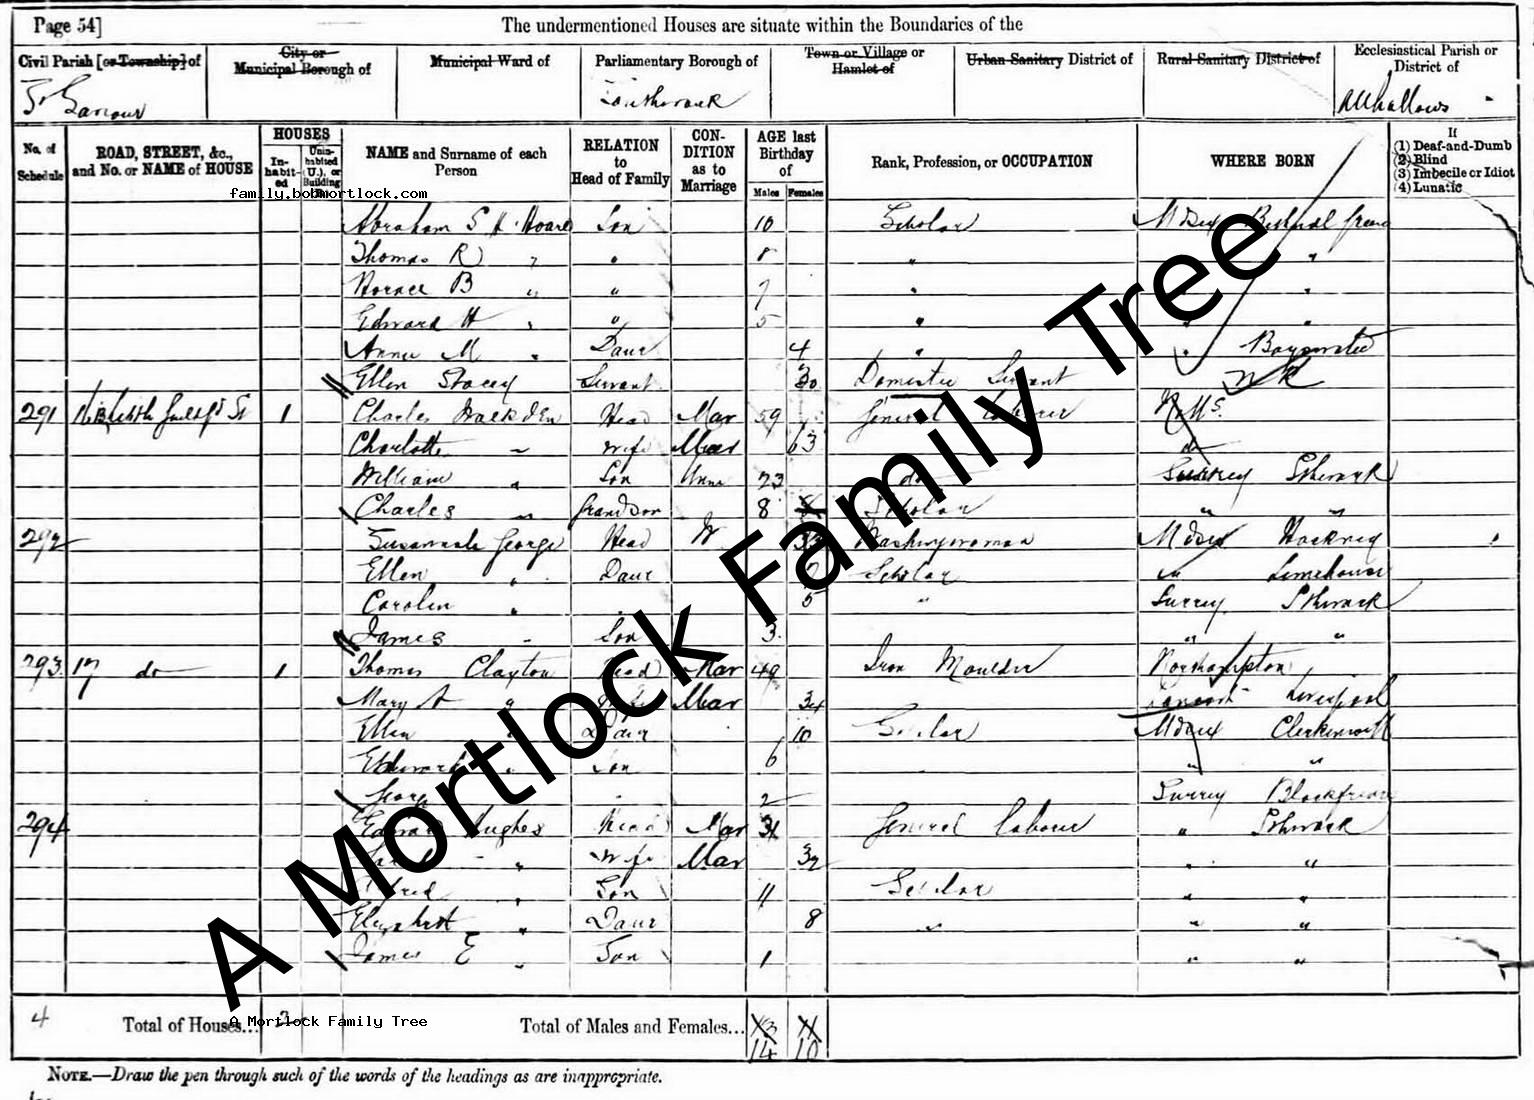 Page 54]
The undermentioned Houses are situate within the Boundaries of the
Civil Parish [or Township] of
City or Municipal Borough of
Municipal Ward of
Parliamentary Borough of
Town or Village or Hamlet of
Urban Sanitary District of
Rural Sanitary District of
Ecclesiastical Parish or District of
St Saviour Southwark Allhallows
No. of Schedule
ROAD, STREET, &c., and No. or NAME of HOUSE
HOUSES
In-habit-ed
Unin-habited (U.), or Building
NAME and Surname of each Person
RELATION to Head of Family
CON-DITION as to Marriage
AGE last Birthday of
Males Females
Rank, Profession, or OCCUPATION
WHERE BORN
If
(1) Deaf-and-Dumb
(2) Blind
(3) Imbecile or Idiot
(4) Lunatic
family.bobmortlock.com
Abraham S H Hoare Son 10 Scholar Mdsex Bethnal Green
Thomas R " " 8 " "
Horace B " " 7 " "
Edward H " " 5 " " "
Annie M " Daur 4 " " Bayswater
Ellen Stacey Servant 30 Domestic Servant NK
291 St 1 Charles Head Mar 59 General Laborer
Charlotte " Wife Mar 63 do
William " Son Unm 23 do Surrey Sthwark
Charles " Grandson 8 Scholar " "
292 Susannah George Head W 33 Washerwoman Mdsex Hackney
Ellen " Daur 7 Scholar " Limehouse
Carolin " " 5 " Surrey Sthwark
James " Son 3 " "
293 17 do 1 Thomas Clayton Head Mar 49 Iron Moulder Northampton
Mary A " Wife Mar 34 Liverpool
Ellen " Daur 10 Scholar Mdsex Clerkenwell
Edward " Son 6 " "
" 2 Surrey Blackfriars
294 Edward Hughes Head Mar 31 General Laborer " Sthwark
" Wife Mar 32 " "
Alfred " Son 11 Scholar " "
Elizabeth " Daur 8 " " "
James E " Son 1 " "
4 Total of Houses... 2
Total of Males and Females... 14 10
A Mortlock Family Tree
NOTE.—Draw the pen through such of the words of the headings as are inappropriate.
A Mortlock Family Tree